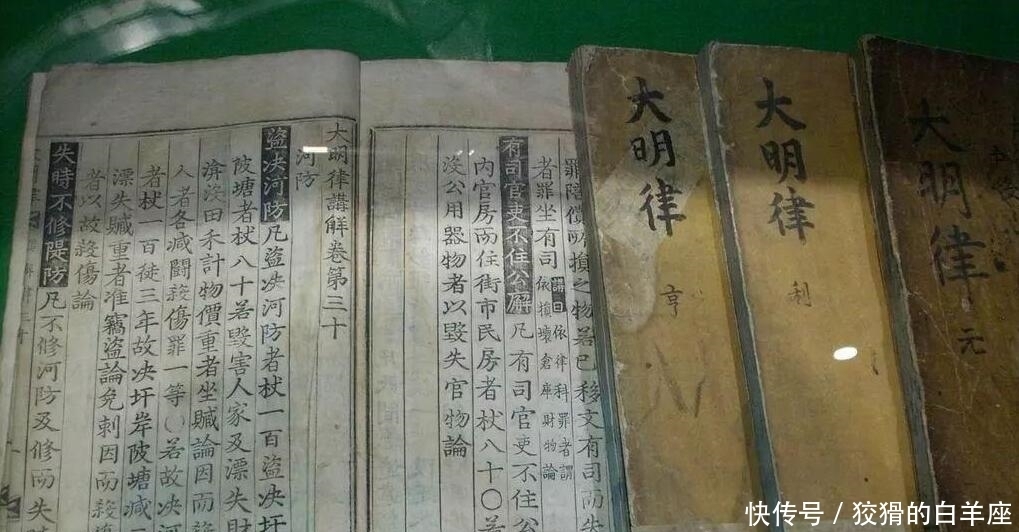 大明律
元
大明律
利
大明律
亨
罪陪償所損之物若已移文有司而失
者罪坐有司
講曰依律科罪者謂
依損壞倉庫財物論
有司官吏不住公廨凡有司官吏不住公
內官房而住街市民房者杖八十〇若
沒公用器物者以毀失官物論
大明律講解卷第三十
河防
盜决河防凡盜决河防者杖一百盜决圩
陂塘者杖八十若毀害人家及漂失財
渰沒田禾計物價重者坐贓論因而殺
人者各减鬪殺傷罪一等〇若故决河
者杖一百徒三年故决圩岸陂塘减二
漂失贓重者准竊盜論免刺因而殺
者以故殺傷論
失時不修隄防凡不修河防及修而失
快传号 / 狡猾的白羊座